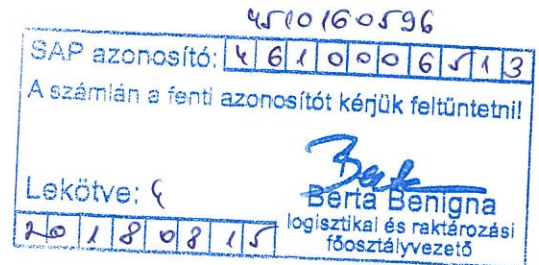 4510160596
SAP azonosító: 4610006513
A számlán a fenti azonosítót kérjük feltüntetni!
Lekötve:
Berta Benigna
logisztikai és raktározási
főosztályvezető
20180815